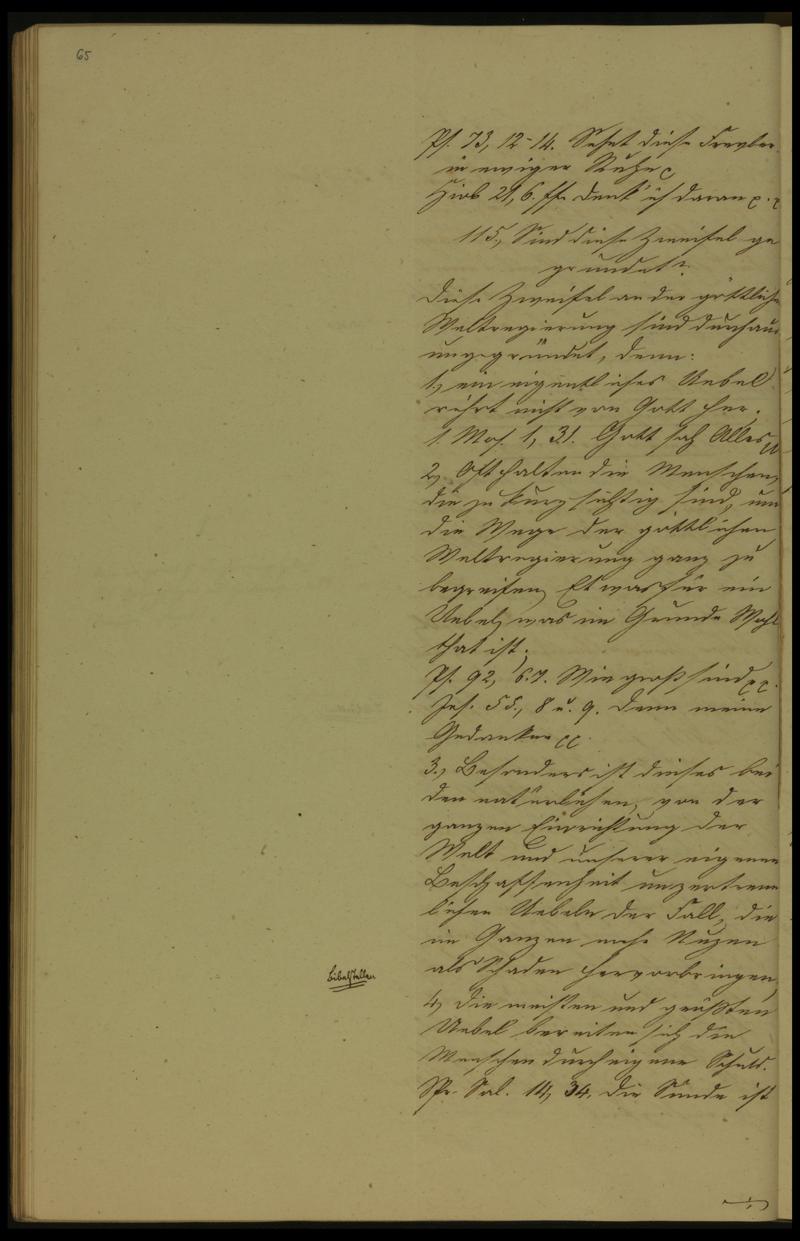 65
Ps. 73, 12-14. Sehet diese Frevler
in ewiger Ruhe
Hiob 21, 6. ff. Denk' ich daran
115, Sind diese Zweifel ge
gründet?
Diese Zweifel an der göttliche
Weltregierung sind durchaus
ungegründet, denn:
1, ein eigentliches Uebel
rührt nicht von Gott her.
1. Mos. 1, 31. Gott sah Alles
2, Oft halten die Menschen,
die zu kurzsichtig sind, um
die Wege der göttlichen
Weltregierung ganz zu
begreifen, Etwas für ein
Uebel, was im Grunde Wohl
that ist.
Ps. 92, 6.7. Wie groß sind
Jes. 55, 8 u. 9. Denn meine
Gedanken
3, Besonders ist dieses bei
den natürlichen, von der
ganzen Einrichtung der
Welt und unserer eigenen
Beschaffenheit unzertrenn
lichen Uebeln der Fall, die
im Ganzen mehr Nuzen
als Schaden hervorbringen,
Bibelstellen
4, Die meisten und größten
Uebel bereiten sich die
Menschen durch eigene Schuld.
Spr. Sal. 14, 34. Die Sünde ist